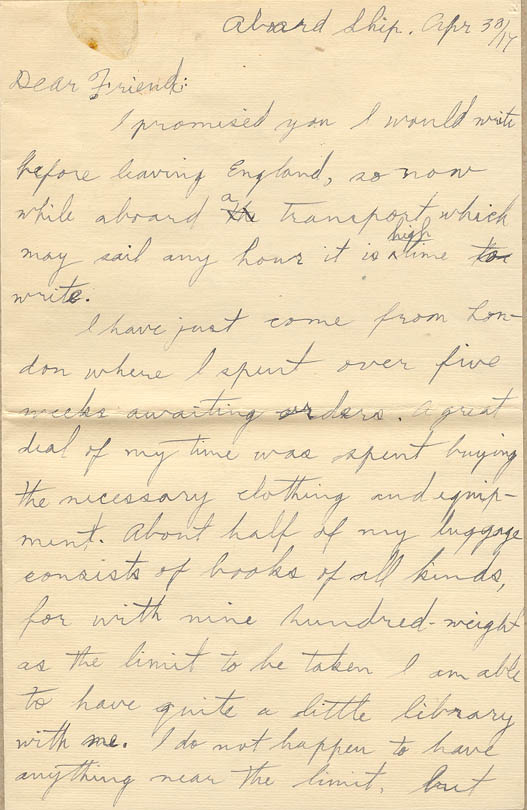 Aboard Ship. Apr 30/17
Dear Friend:
I promised you I would write
before leaving England, so now
while aboard a transport which
may sail any hour it is high time to
write.
I have just come from Lon-
don where I spent over five
weeks awaiting orders. A great
deal of my time was spent buying
the necessary clothing and equip-
ment. About half of my luggage
consists of books of all kinds,
for with nine hundred-weight
as the limit to be taken I am able
to have quite a little library
with me. I do not happen to have
anything near the limit, but